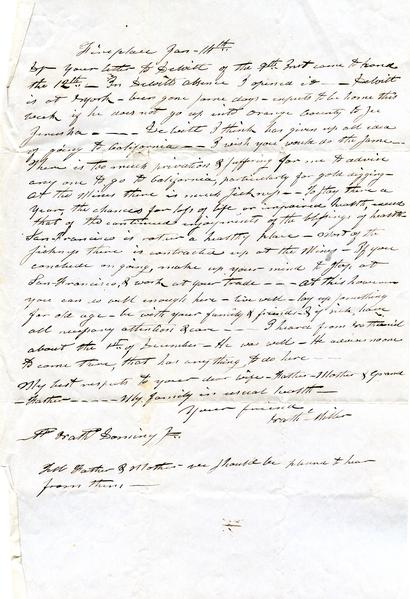 Fireplace Jan- 14th
By your letter to Dewitt of the 9th Inst came to hand
the 12th - In Dewitts absence I opened it - Dewitt
is at NYork - been gone some days - expects to be home this
week if he does not go up into Orange County to see
Jerusha - - - - Dewitt I think has given up all idea
of going to California - - I wish you would do the same -
There is too much privation & suffering for me to advise
any one to go to California particularly for gold digging -
At the Mines there is much sickness - To stay there a
year, the chances for loss of life or impaired health, exceed
that of the continued enjoyments of the blessings of health
San Francisco is rather a healthy place - most of the
sickness there is contracted up at the Mines - If you
conclude on going, make up your mind to stop, at
San Francisco, & work at your trade - - - At this however
you can do well enough here - live well - lay up something
for old age - be with your family & friends & if sick, have
all necessary attention & care - - - I heard from Nathaniel
about the 1st of December - He was well - He advises none
to come there, that has anything to do here - -
My best respects to your dear wife - Father - Mother & Grand
Father - - - - - My family in usual health -
Your friend
Nathl Miller
Mr Nath Dominy Jr.
Tell Father & Mother we should be pleased to hear
from them -